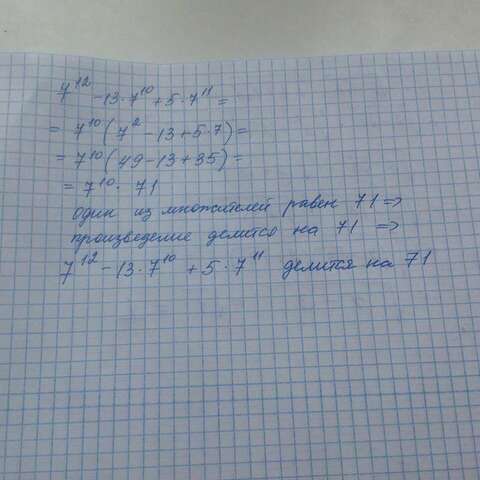 7¹² - 13·7¹⁰ + 5·7¹¹ =
= 7¹⁰(7² - 13 + 5·7) =
= 7¹⁰(49 - 13 + 35) =
= 7¹⁰· 71
один из множителей равен 71 ⇒
произведение делится на 71 ⇒
7¹² - 13·7¹⁰ + 5·7¹¹ делится на 71